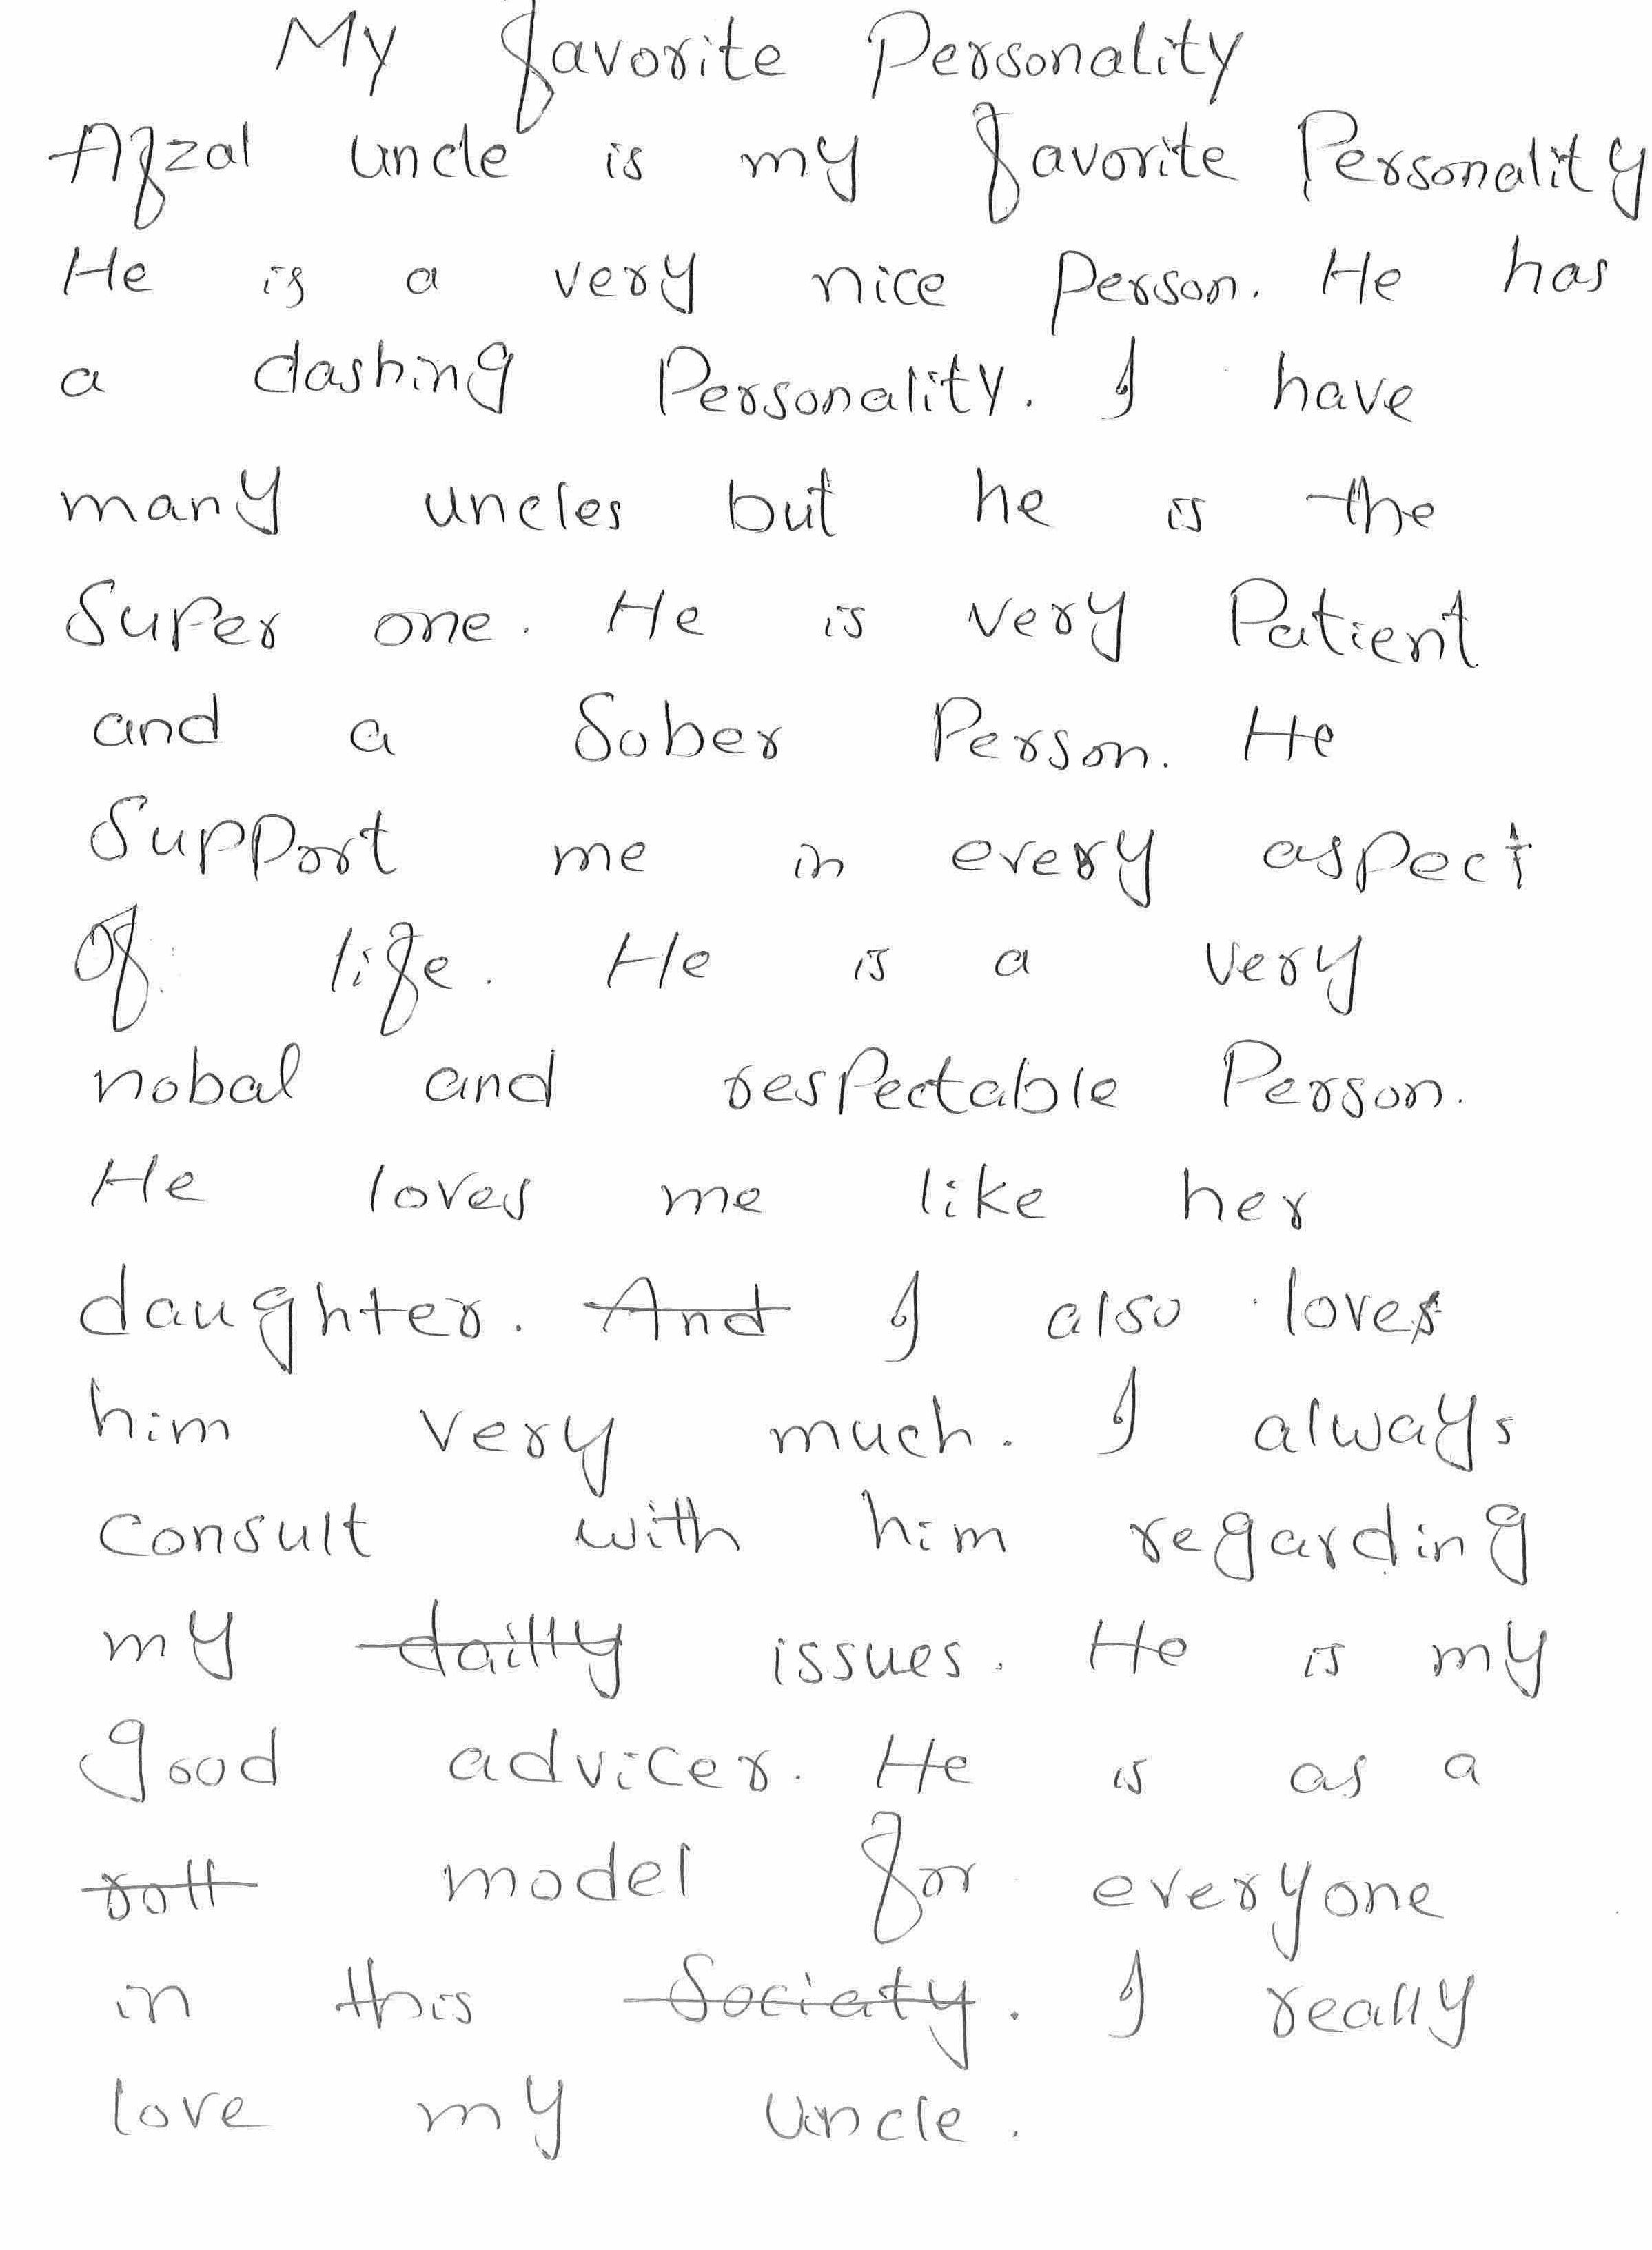 My favorite Personality
Afzal uncle is my favorite Personality
He is a very nice person. He has
a dashing Personality. I have
many uncles but he is the
Super one. He is very Patient
and a Sober Person. He
Support me in every aspect
of life. He is a very
nobal and respectable Person.
He loves me like her
daughter. And I also loves
him very much. I always
consult with him regarding
my dailly issues. He is my
good advicer. He is as a
roll model for everyone
in this Sociaty. I really
love my uncle.